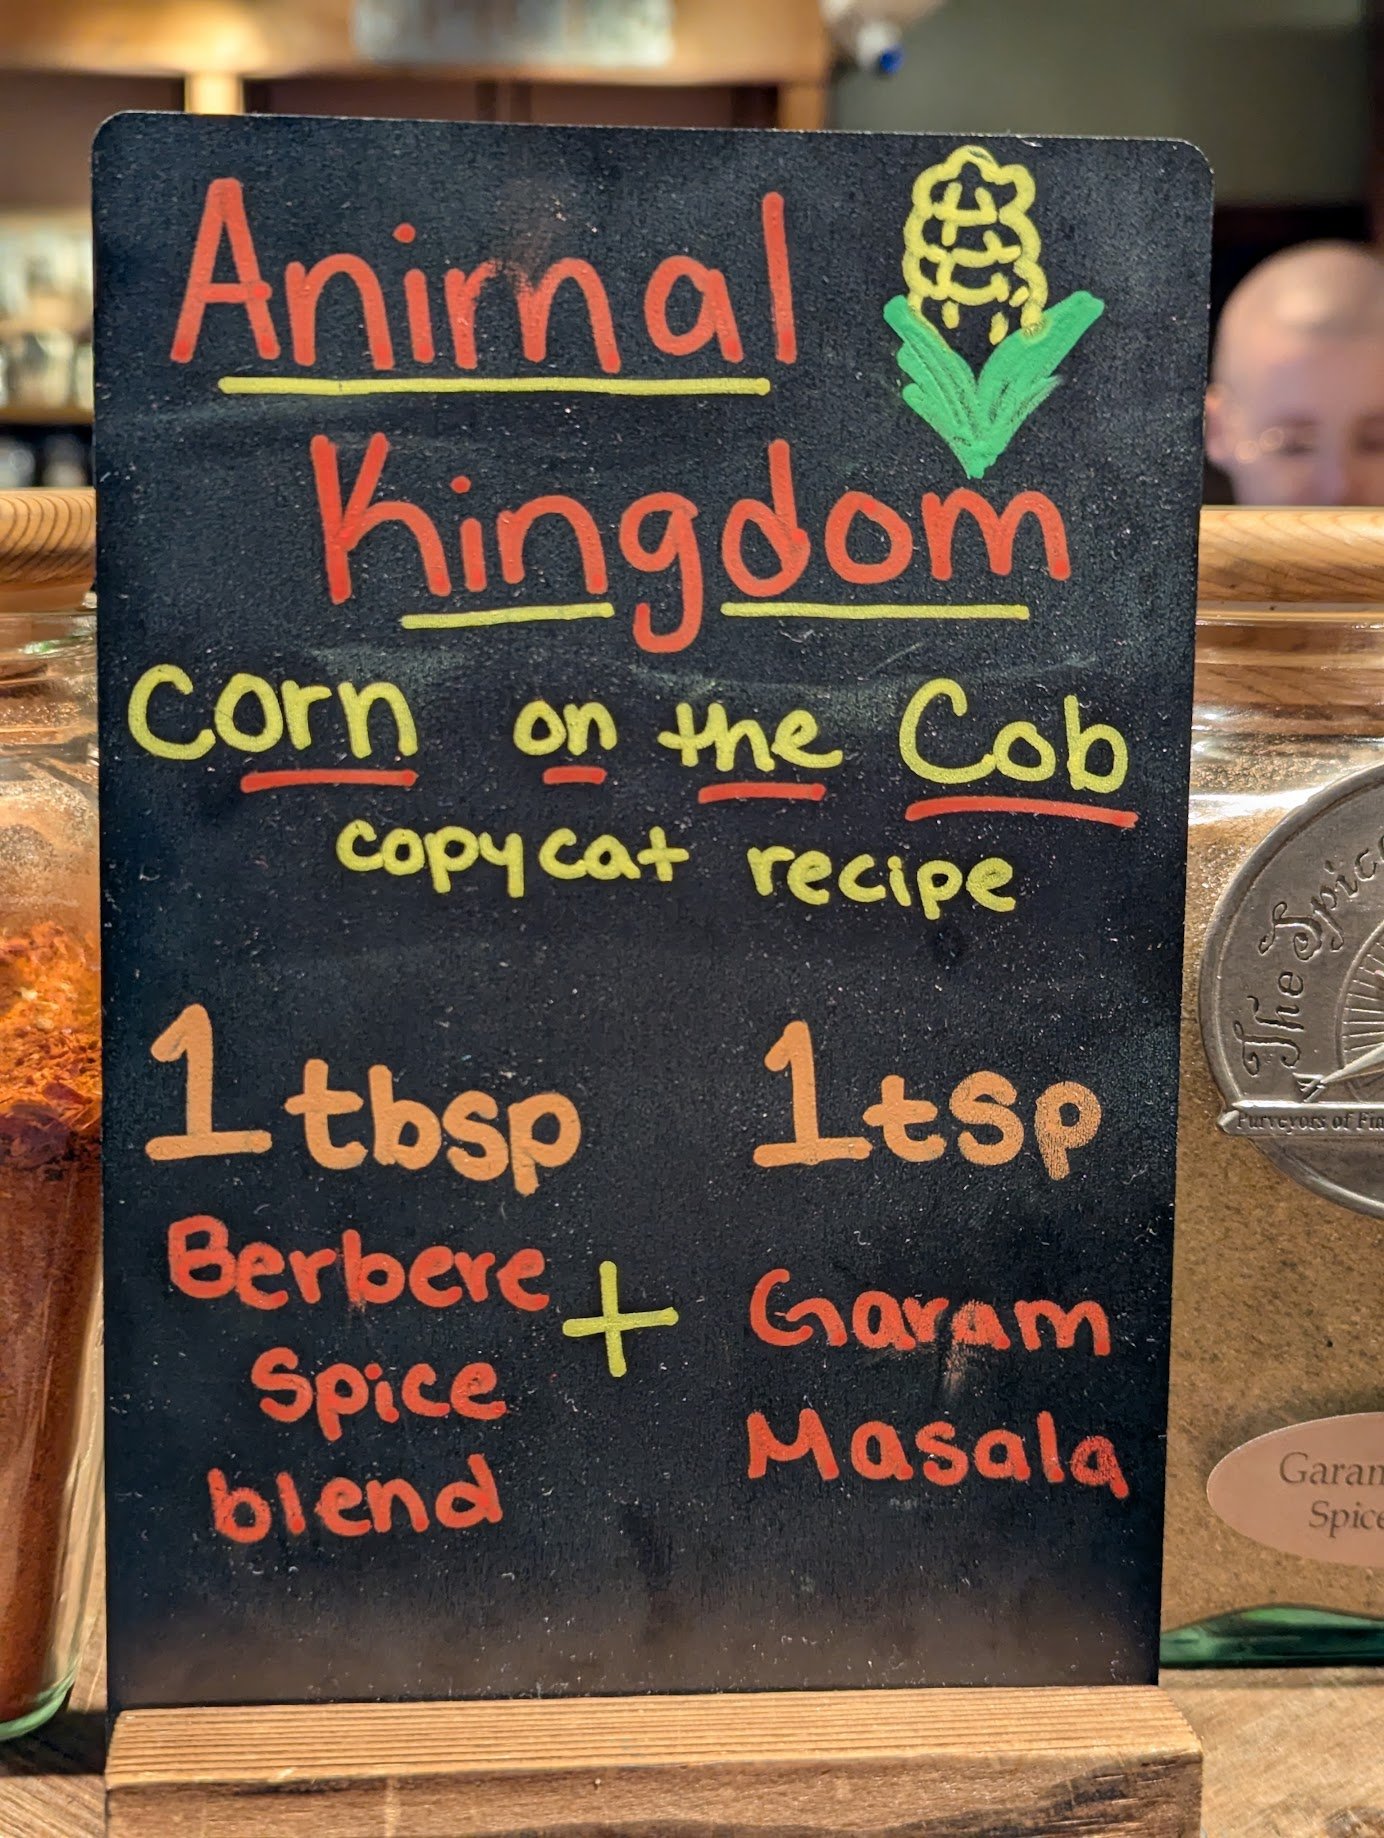 Anirnal
Kingdom
Corn on the Cob
copycat recipe
1 tbsp
Berbere
Spice
blend
+
1 tsp
Garam
Masala
The Spice
Purveyors of
Spice